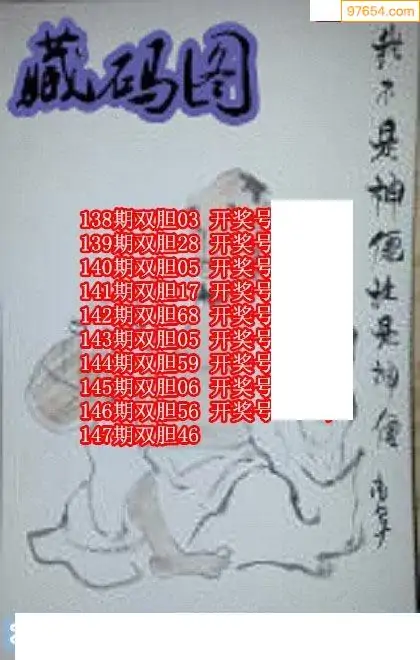 97654.com
藏码图
138期双胆03 开奖号
139期双胆28 开奖号
140期双胆05 开奖号
141期双胆17 开奖号
142期双胆68 开奖号
143期双胆05 开奖号
144期双胆59 开奖号
145期双胆06 开奖号
146期双胆56 开奖号
147期双胆46
我不是神僊谁是神僊